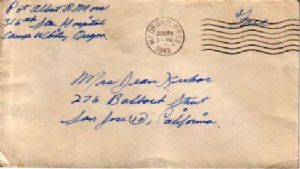 Pvt Albert D. Moore
316th Sta Hospital
Camp White, Oregon.
MEDFORD, OREG.
JUN
3 - PM
1943
Free
Mrs Jean
276 Balbach Street
San Jose 12, California